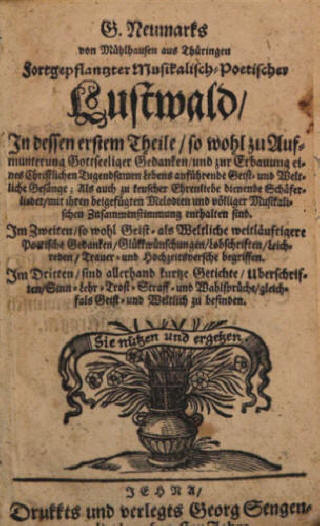 G. Neumarks
von Mühlhausen aus Thüringen
Fortgepflantzter Musikalisch-Poetischer
Lustwald/
In dessen erstem Theile/ so wohl zu Auf-
munterung Gottseeliger Gedanken/ und zur Erbauung ei-
nes Christlichen Tugendsamen Lebens anführende Geist- und Welt-
liche Gesänge; Als auch zu keuscher Ehrenliebe dienende Schäfer-
lieder/ mit ihren beigefügten Melodien und völliger Musikali-
schen Zusammenstimmung enthalten sind.
Im Zweiten/ so wohl Geist- als Weltliche weitläufigere
Poetische Gedanken/ Glükkwünschungen/ Lobschriften/ Leich-
reden/ Trauer- und Hochzeitversche begriffen.
Im Dritten/ sind allerhand kurtze Getichte/ Uberschrif-
ten/ Sinn- Lehr- Trost- Straff- und Wahlsprüche/ gleich-
fals Geist- und Weltlich zu befinden.
Sie nützen und ergetzen.
JEHNA/
Drukkts und verlegts Georg Sengen-